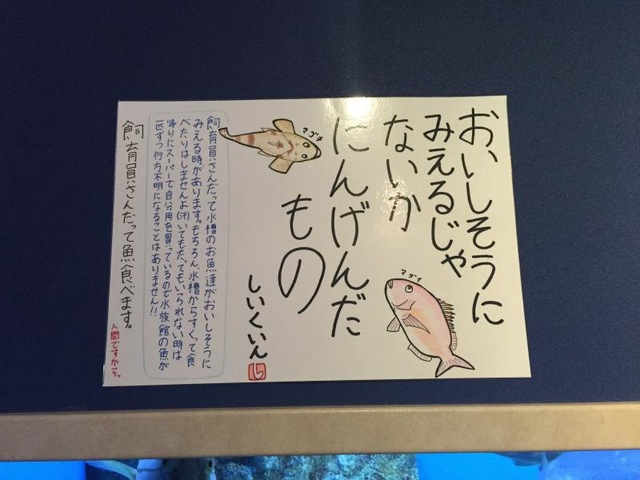 おいしそうに
みえるじゃ
ないか
にんげんだ
もの
しいくいん
マゴチ
マダイ
飼育員さんだって水槽のお魚達がおいしそうに
みえる時があります。もちろん、水槽からすくって食
べたりはしませんよ(汗)いてもたってもいられない時は
帰りにスーパーで自分用を買っているので水族館の魚が
一匹ずつ行方不明になることはありません!!
飼育員さんだって魚食べます。
人間ですから。